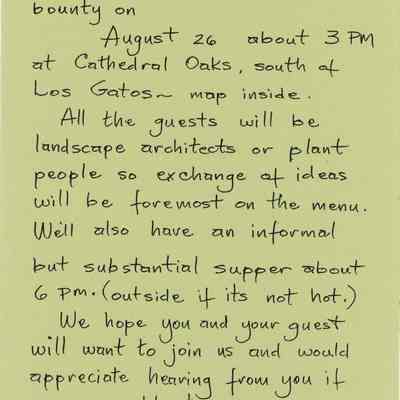 bounty on
August 26 about 3 PM
at Cathedral Oaks, south of
Los Gatos~ map inside.
All the guests will be
landscape architects or plant
people so exchange of ideas
will be foremost on the menu.
We'll also have an informal
but substantial supper about
6 pm. (outside if its not hot.)
We hope you and your guest
will want to join us and would
appreciate hearing from you if